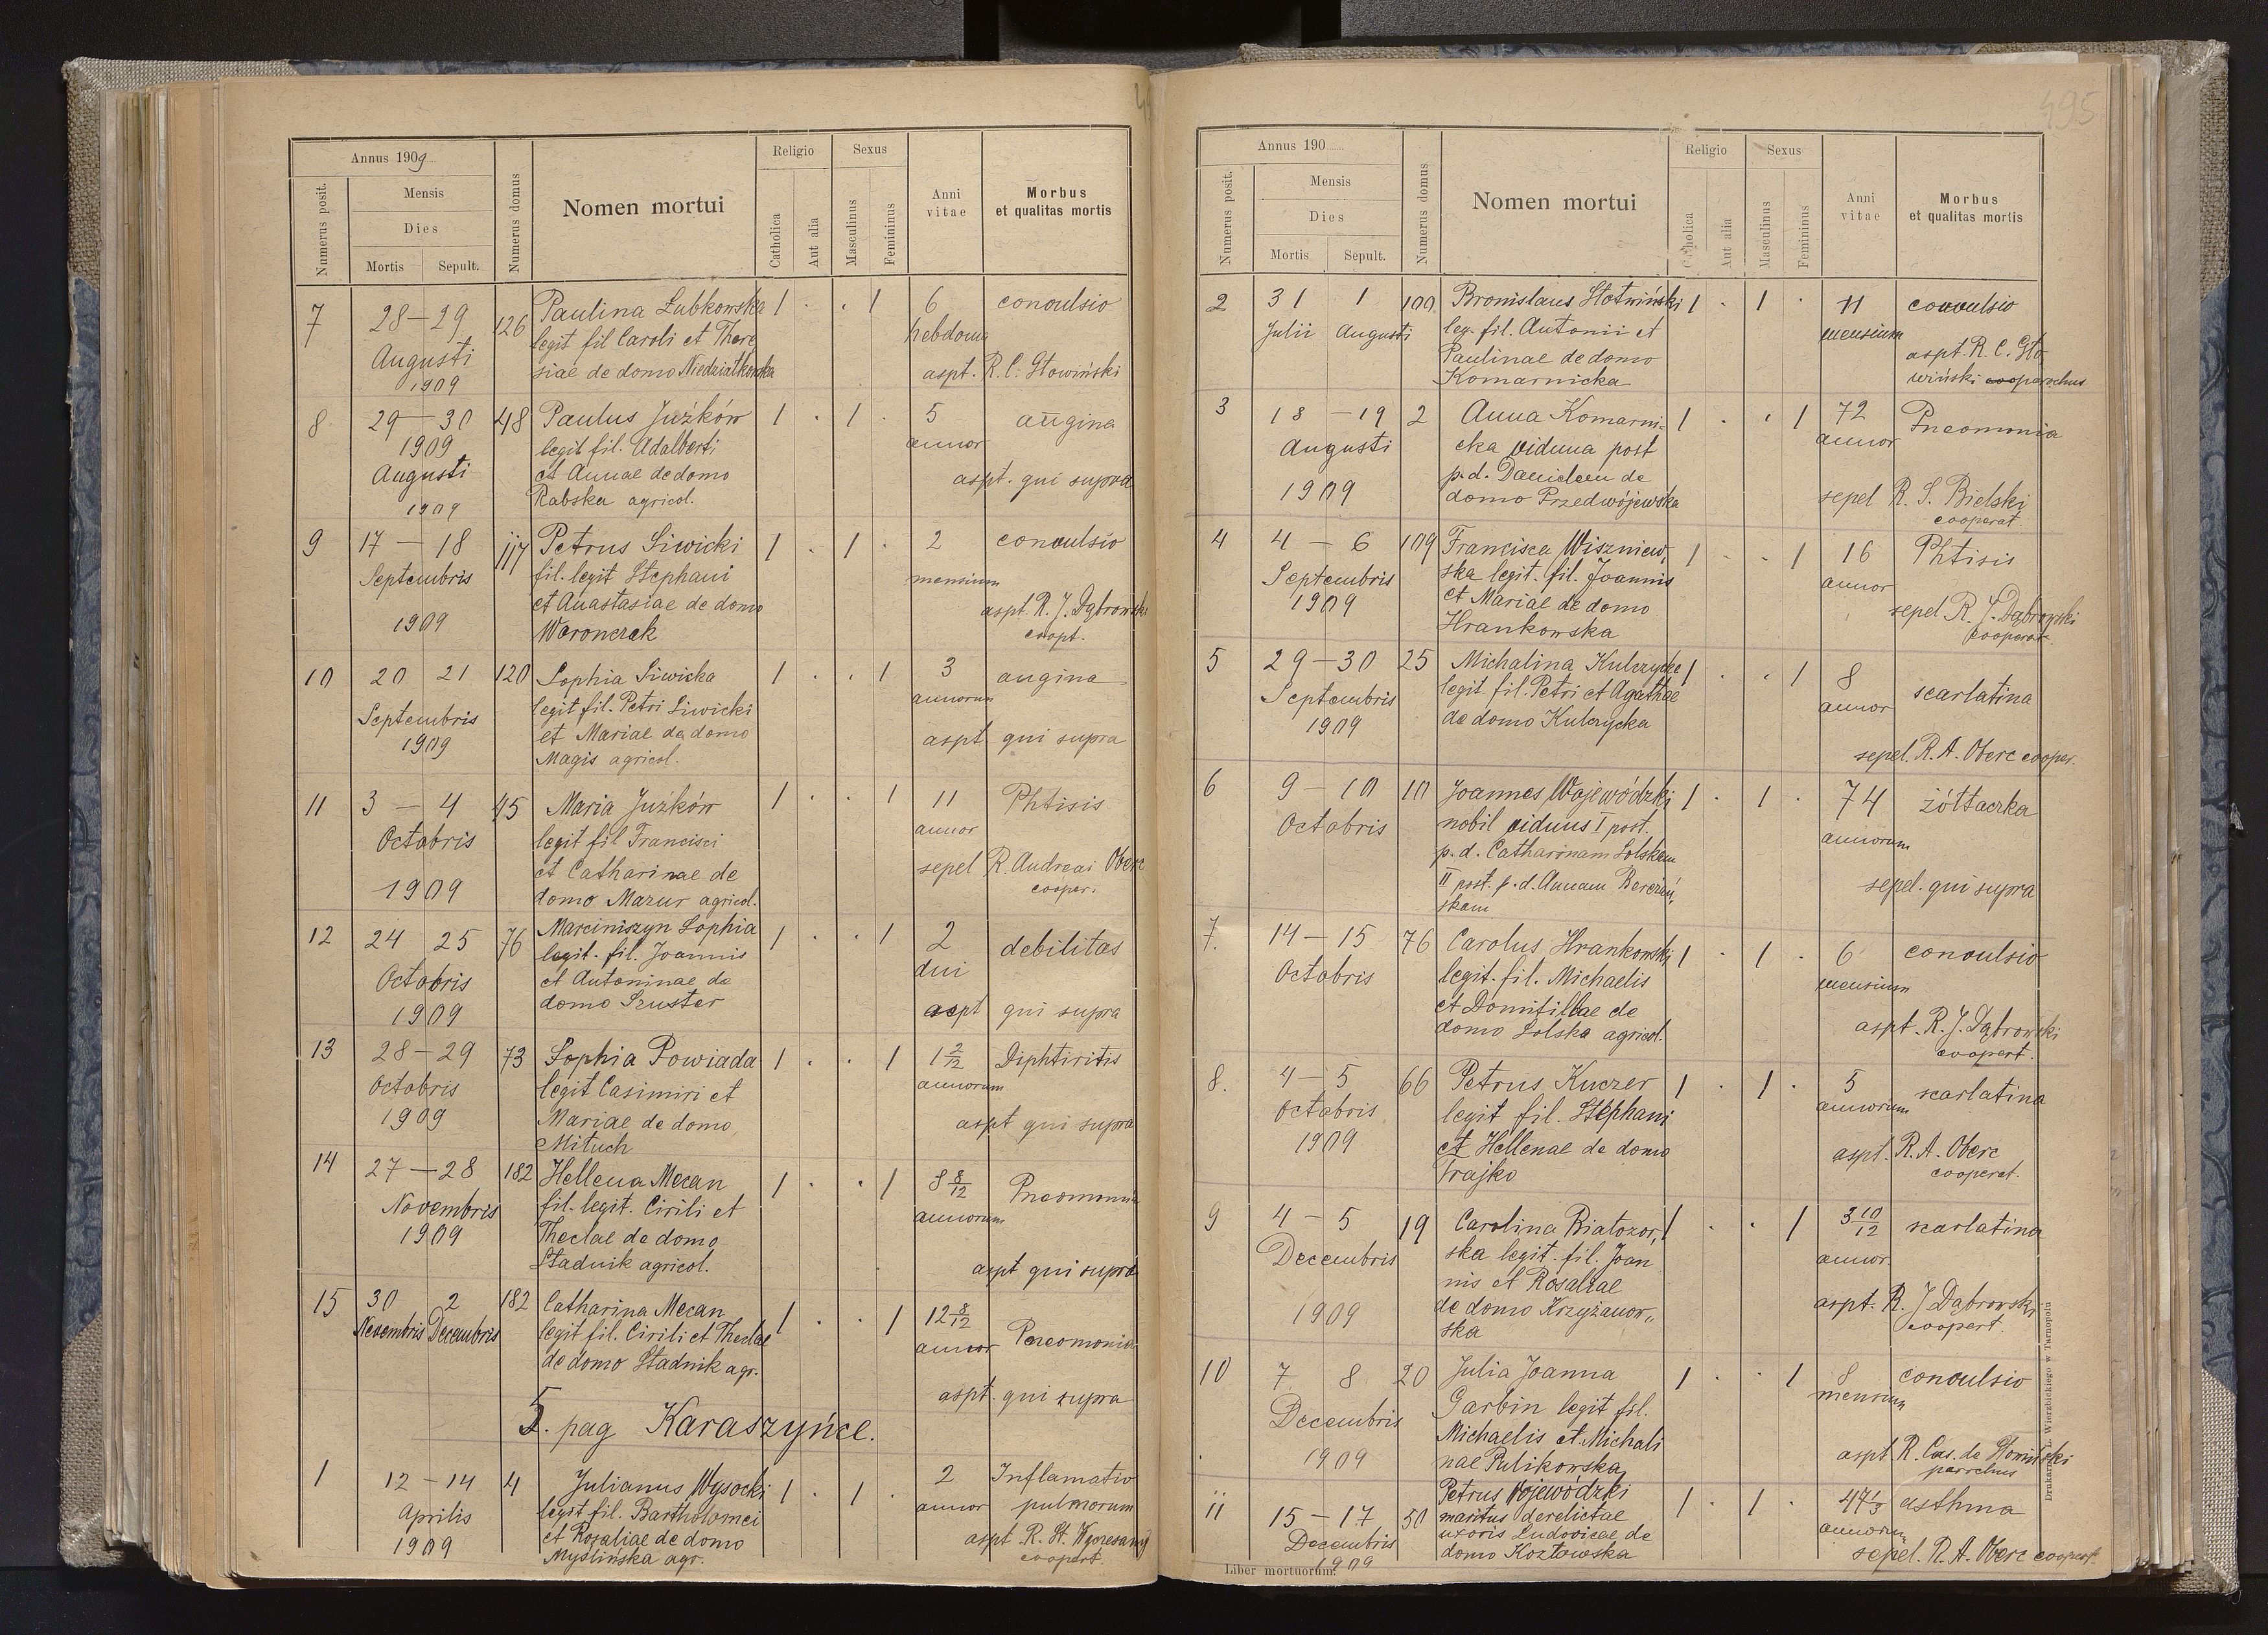 Annus 1909
Numerus posit.
Mensis
Dies
Mortis Sepult.
Numerus domus
Nomen mortui
Religio
Catholica
Aut alia
Sexus
Masculinus
Femininus
Anni vitae
Morbus et qualitas mortis
7 28 — 29 126 Paulina Łubkowska 1 . . 1 6 convulsio
legit fil Caroli et There hebdom
Augusti siae de domo Niedziałkowska aspt. R. C. Głowiński
1909
8 29 — 30 48 Paulus Juźków 1 . 1 . 5 angina
1909 legit fil. Adalberti annor
Augusti et Annae de domo aspt. qui supra
1909 Rabska agricol.
9 17 — 18 117 Petrus Siwicki 1 . 1 . 2 convulsio
Septembris fil. legit Stephani mensium
et Anastasiae de domo aspt R. J. Dąbrowski
1909 Woronczak coopt.
10 20 21 120 Sophia Siwicka 1 . . 1 3 angina
Septembris legit fil. Petri Siwicki annorum
1909 et Mariae de domo aspt qui supra
Magis agricol.
11 3 — 4 45 Maria Juźków 1 . . 1 11 Phtisis
Octobris legit fil Francisci annor
et Catharinae de sepel R. Andreas Oberc
1909 domo Mazur agricol. cooper.
12 24 25 76 Marciniszyn Sophia 1 . . 1 2 debilitas
legit. fil. Joannis dui
Octobris et Antoninae de
1909 domo Szuster aspt qui supra
13 28 — 29 73 Sophia Powiada 1 . . 1 1 2/12 Diphtiritis
Octobris legit Casimiri et annorum
1909 Mariae de domo aspt qui supra
Mituch
14 27 — 28 182 Hellena Mecan 1 . . 1 8 8/12 Pneomonia
Novembris fil. legit. Cirili et annorum
1909 Theclae de domo
Stadnik agricol. aspt qui supra
15 30 2 182 Catharina Mecan 1 . . 1 12 8/12 Pneomonia
Novembris Decembris legit fil. Cirili et Theclae annor
de domo Stadnik agr. aspt. qui supra
5. pag Karaszyńce.
1 12 — 14 4 Julianus Wysocki 1 . 1 . 2 Inflamatio
Aprilis legit fil. Bartholomei annor pulmorum
1909 et Rosaliae de domo aspt R. St.
Myślińska agr. coopert.
495
Annus 190
Numerus posit.
Mensis
Dies
Mortis Sepult.
Numerus domus
Nomen mortui
Religio
Catholica
Aut alia
Sexus
Masculinus
Femininus
Anni vitae
Morbus et qualitas mortis
2 31 1 100 Bronislaus Słotwiński 1 . 1 . 11 convulsio
Julii Augusti leg. fil. Antonii et mensium
Paulinae de domo aspt. R. C. Gło
Komarnicka wiński parochus
3 18 — 19 2 Anna Komarni- 1 . . 1 72 Pneomonia
Augusti cka vidua post annor
p. d. Danielem de sepel R. S. Bielski
1909 domo Przedwójewska cooperat
4 4 — 6 109 Francisca Wiszniew- 1 . . 1 16 Phtisis
Septembris ska legit. fil. Joannis annor
1909 et Mariae de domo sepel. R. J. Dąbrowski
Hrankowska cooperat.
5 29 — 30 25 Michalina Kulczycka 1 . . 1 8 scarlatina
Septembris legit. fil. Petri et Agathae annor
1909 de domo Kulczycka
sepel. R. A. Oberc cooper.
6 9 — 10 10 Joannes Wojewódzki 1 . 1 . 74 żółtaczka
Octobris nobil viduus I post. annorum
p. d. Catharinam Solskam
II post. p. d. Annam Bereżań, sepel. qui supra
skam
7. 14 — 15 76 Carolus Hrankowski 1 . 1 . 6 convulsio
Octobris legit. fil. Michaelis mensium
et Domitillae de aspt. R. J. Dąbrowski
domo Solska agricol. coopert.
8. 4 — 5 66 Petrus Kuczer 1 . 1 . 5 scarlatina
Octobris legit fil. Stephani annorum
1909 et Hellenae de domo aspt. R. A. Oberc
Trajko cooperat.
9 4 — 5 19 Carolina Białozor, 1 . . 1 3 10/12 scarlatina
Decembris ska legit. fil. Joan annor
nis et Rosaliae
1909 de domo Krzyżanow,, aspt. R. J Dąbrowski
ska coopert.
10 7 8 20 Julia Joanna 1 . . 1 8 convulsio
Decembris Garbin legit fil. mensium
Michaelis et Michali
1909 nae Pulikowska aspt R. Cas. de Słowiński
parochus
11 15 — 17 50 Petrus Wojewódzki 1 . 1 . 47 1/3 asthma
Decembris maritus derelictae annorum
1909 uxoris Ludovicae de
domo Kozłowska sepel. R. A. Oberc coopert.
Liber mortuorum.
Drukarnia Wierzbickiego w Tarnopolu